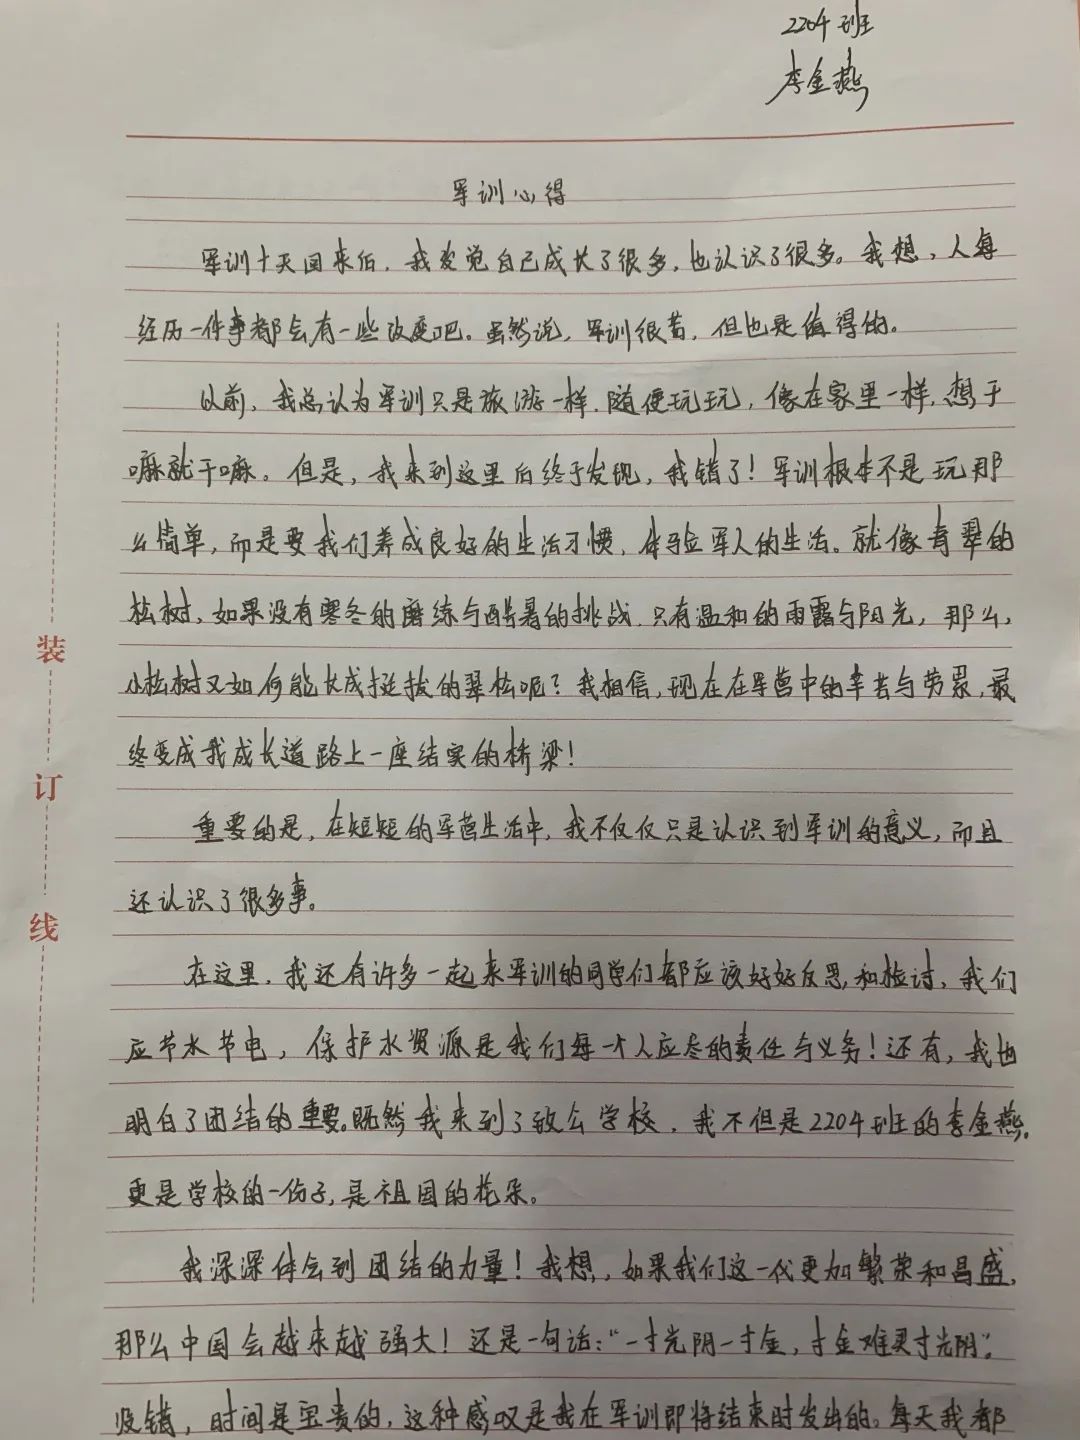 2204班
李金燕
军训心得
军训十天回来后，我发觉自己成长了很多，也认识了很多。我想，人每
经历一件事都会有一些改变吧。虽然说，军训很苦，但也是值得的。
以前，我总认为军训只是旅游一样，随便玩玩，像在家里一样，想干
嘛就干嘛。但是，我来到这里后终于发现，我错了！军训根本不是玩那
么简单，而是要我们养成良好的生活习惯，体验军人的生活。就像青翠的
松树，如果没有寒冬的磨练与酷暑的挑战，只有温和的雨露与阳光，那么，
小松树又如何能长成挺拔的翠松呢？我相信，现在在军营中的辛苦与劳累，最
终变成我成长道路上一座结实的桥梁！
重要的是，在短短的军营生活中，我不仅仅只是认识到军训的意义，而且
还认识了很多事。
在这里，我还有许多一起来军训的同学们都应该好好反思和检讨，我们
应节水节电，保护水资源是我们每一个人应尽的责任与义务！还有，我也
明白了团结的重要。既然我来到了致公学校，我不但是2204班的李金燕，
更是学校的一份子，是祖国的花朵。
我深深体会到团结的力量！我想，如果我们这一代更加繁荣和昌盛，
那么中国会越来越强大！还是一句话：“一寸光阴一寸金，寸金难买寸光阴”。
没错，时间是宝贵的，这种感叹是我在军训即将结束时发出的。每天我都
装
订
线